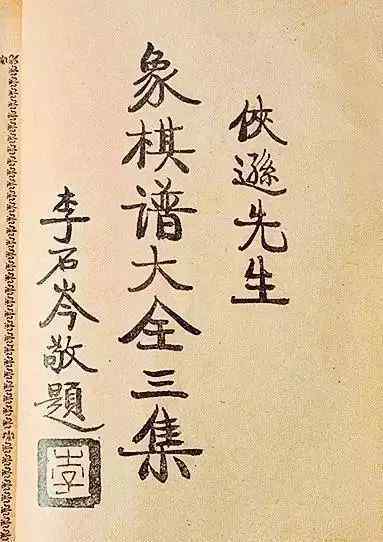 俠遜先生
象棋谱大全三集
李石岑敬題
李